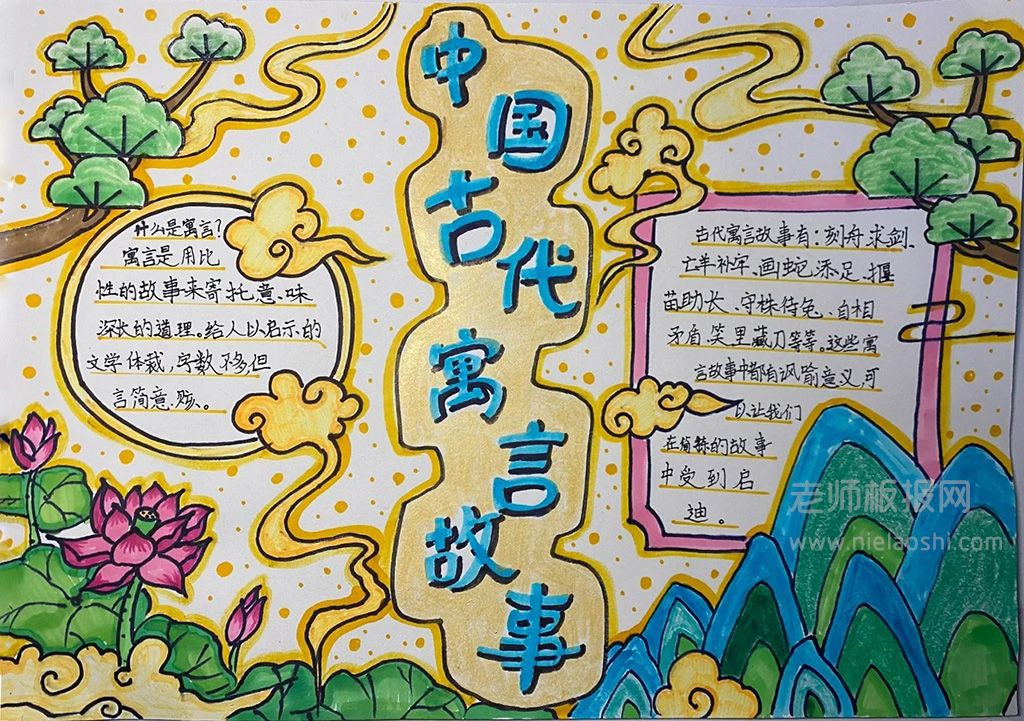 中国古代寓言故事
什么是寓言?
寓言是用比
性的故事来寄托意味
深长的道理。给人以启示的
文学体裁,字数不多,但
言简意赅。
古代寓言故事有:刻舟求剑、
亡羊补牢、画蛇添足、揠
苗助长、守株待兔、自相
矛盾、笑里藏刀等等。这些寓
言故事中都有讽喻意义,可
以让我们
在简练的故事
中受到启
迪。
老师板报网
www.nielaoshi.com